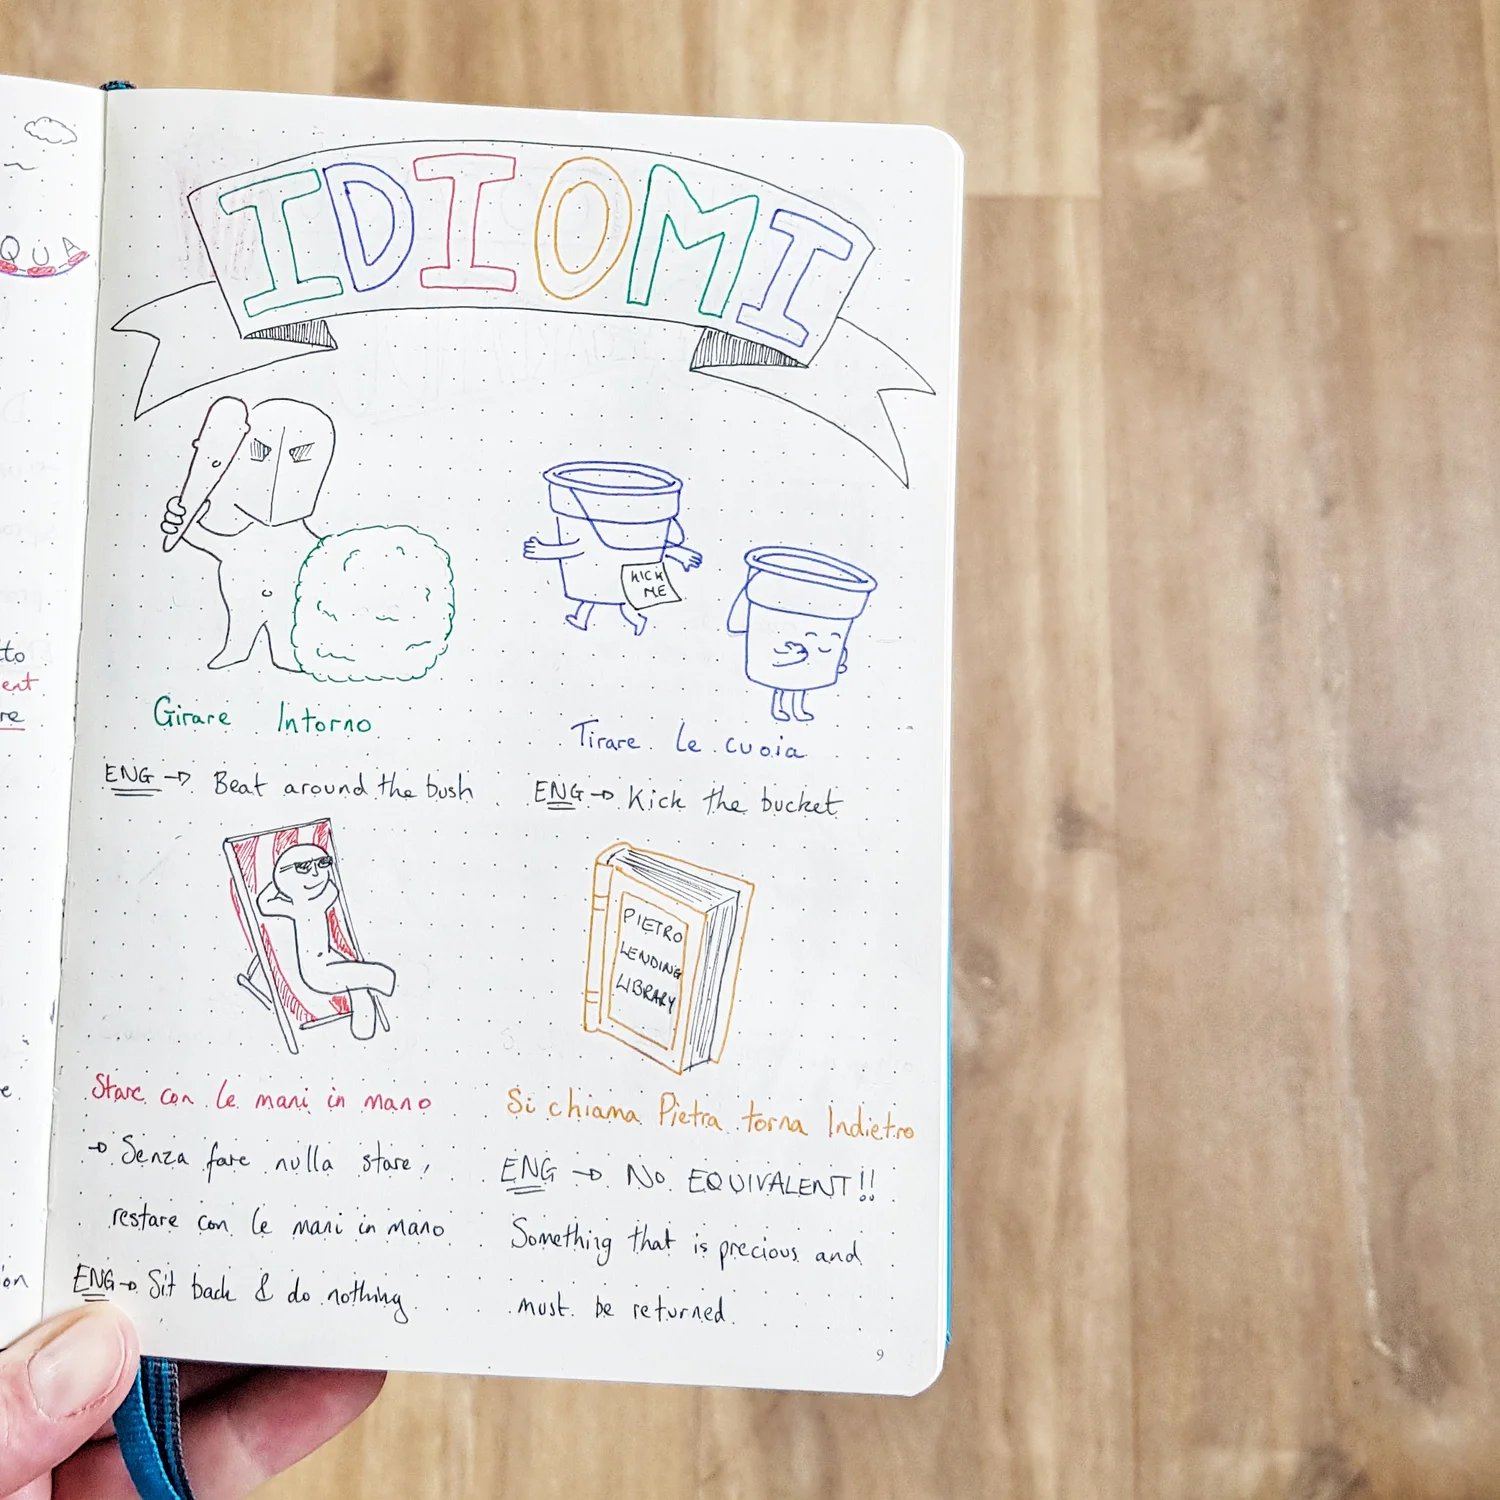 QUA
to
ent
re
e.
on
IDIOMI
KICK
ME
Girare Intorno
ENG → Beat around the bush
Tirare le cuoia
ENG → Kick the bucket
PIETRO
LENDING
LIBRARY
Stare con le mani in mano
→ Senza fare nulla stare,
restare con le mani in mano
ENG → Sit back & do nothing
Si chiama Pietra torna Indietro
ENG → NO EQUIVALENT!!
Something that is precious and
must be returned.
9